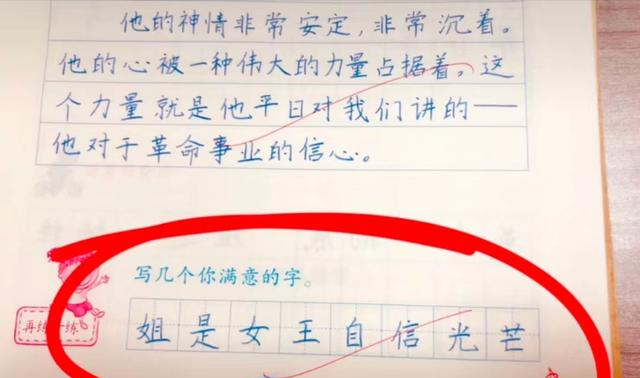 他的神情非常安定，非常沉着。
他的心被一种伟大的力量占据着。这
个力量就是他平日对我们讲的——
他对于革命事业的信心。
写几个你满意的字。
再练一练
姐是女王自信光芒